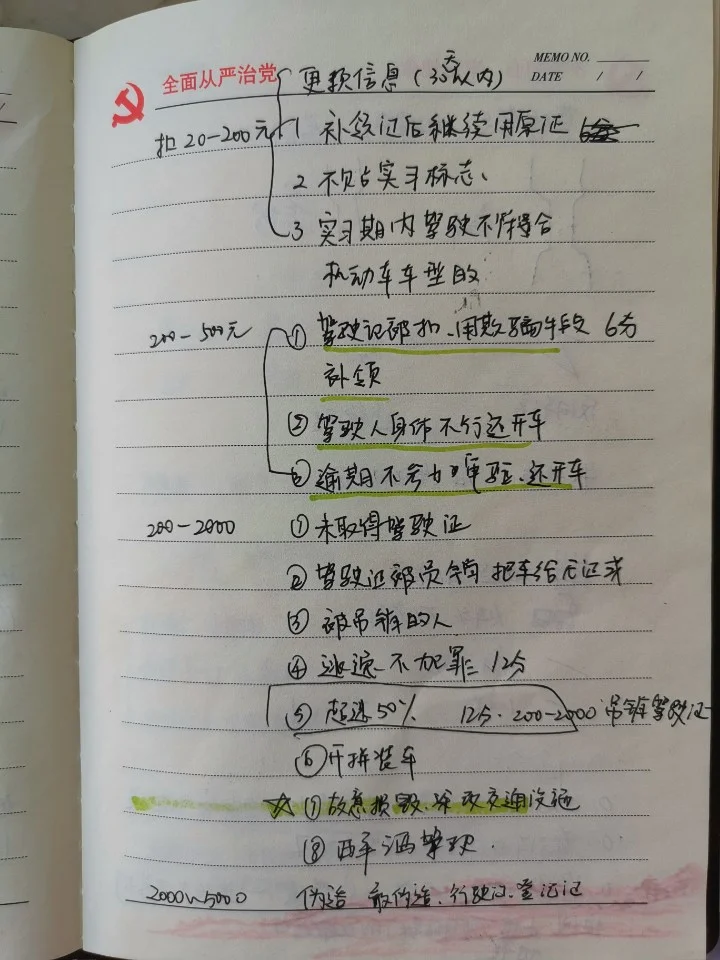 MEMO NO.
全面从严治党 更换信息（30天以内）
DATE / /
扣20-200元 1 补领证后继续用原证
2 不贴实习标志、
3 实习期内驾驶不符合
机动车车型的
200-500元 ① 驾驶证被扣、用欺骗手段 6分
补领
② 驾驶人身体不行还开车
③ 逾期不参加审验、还开车
200-2000 ① 未取得驾驶证
② 驾驶证被 把车给无证或
③ 被吊销的人
④ 逃逸 不加罪 12分
⑤ 超速50% 12分·200-2000 吊销驾驶证
⑥ 开拼装车
☆ ⑦ 故意损毁、涂改交通设施
⑧ 酒驾
2000~5000 伪造 行驶证、登记证